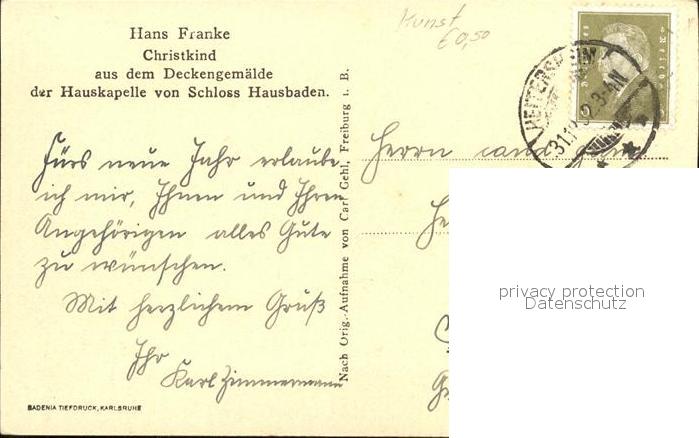 Hans Franke
Christkind
aus dem Deckengemälde
der Hauskapelle von Schloss Hausbaden.
Kunst
€ 0,50
Fürs neue Jahr erlaube
ich mir, Ihnen und Ihren
Angehörigen alles Gute
zu wünschen.
Mit herzlichem Gruß
Ihr
Karl Zimmermann
BADENIA TIEFDRUCK, KARLSRUHE
Nach Orig.-Aufnahme von Carl Gehl, Freiburg i. B.
Herrn cand.
privacy protection
Datenschutz